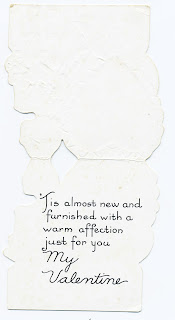 'Tis almost new and
furnished with a
warm affection
just for you
My
Valentine